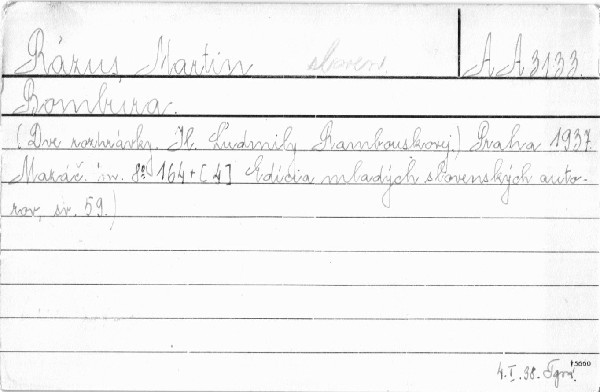 Rázus, Martin slovens. AA 3133.
Bombura.
(Dve rozprávky. Il. Ludmily Rambouskovej.) Praha 1937.
Mazáč. m. 8° 164+[4] Edícia mladých slovenských auto-
rov, sv. 59.)
4.I.38.